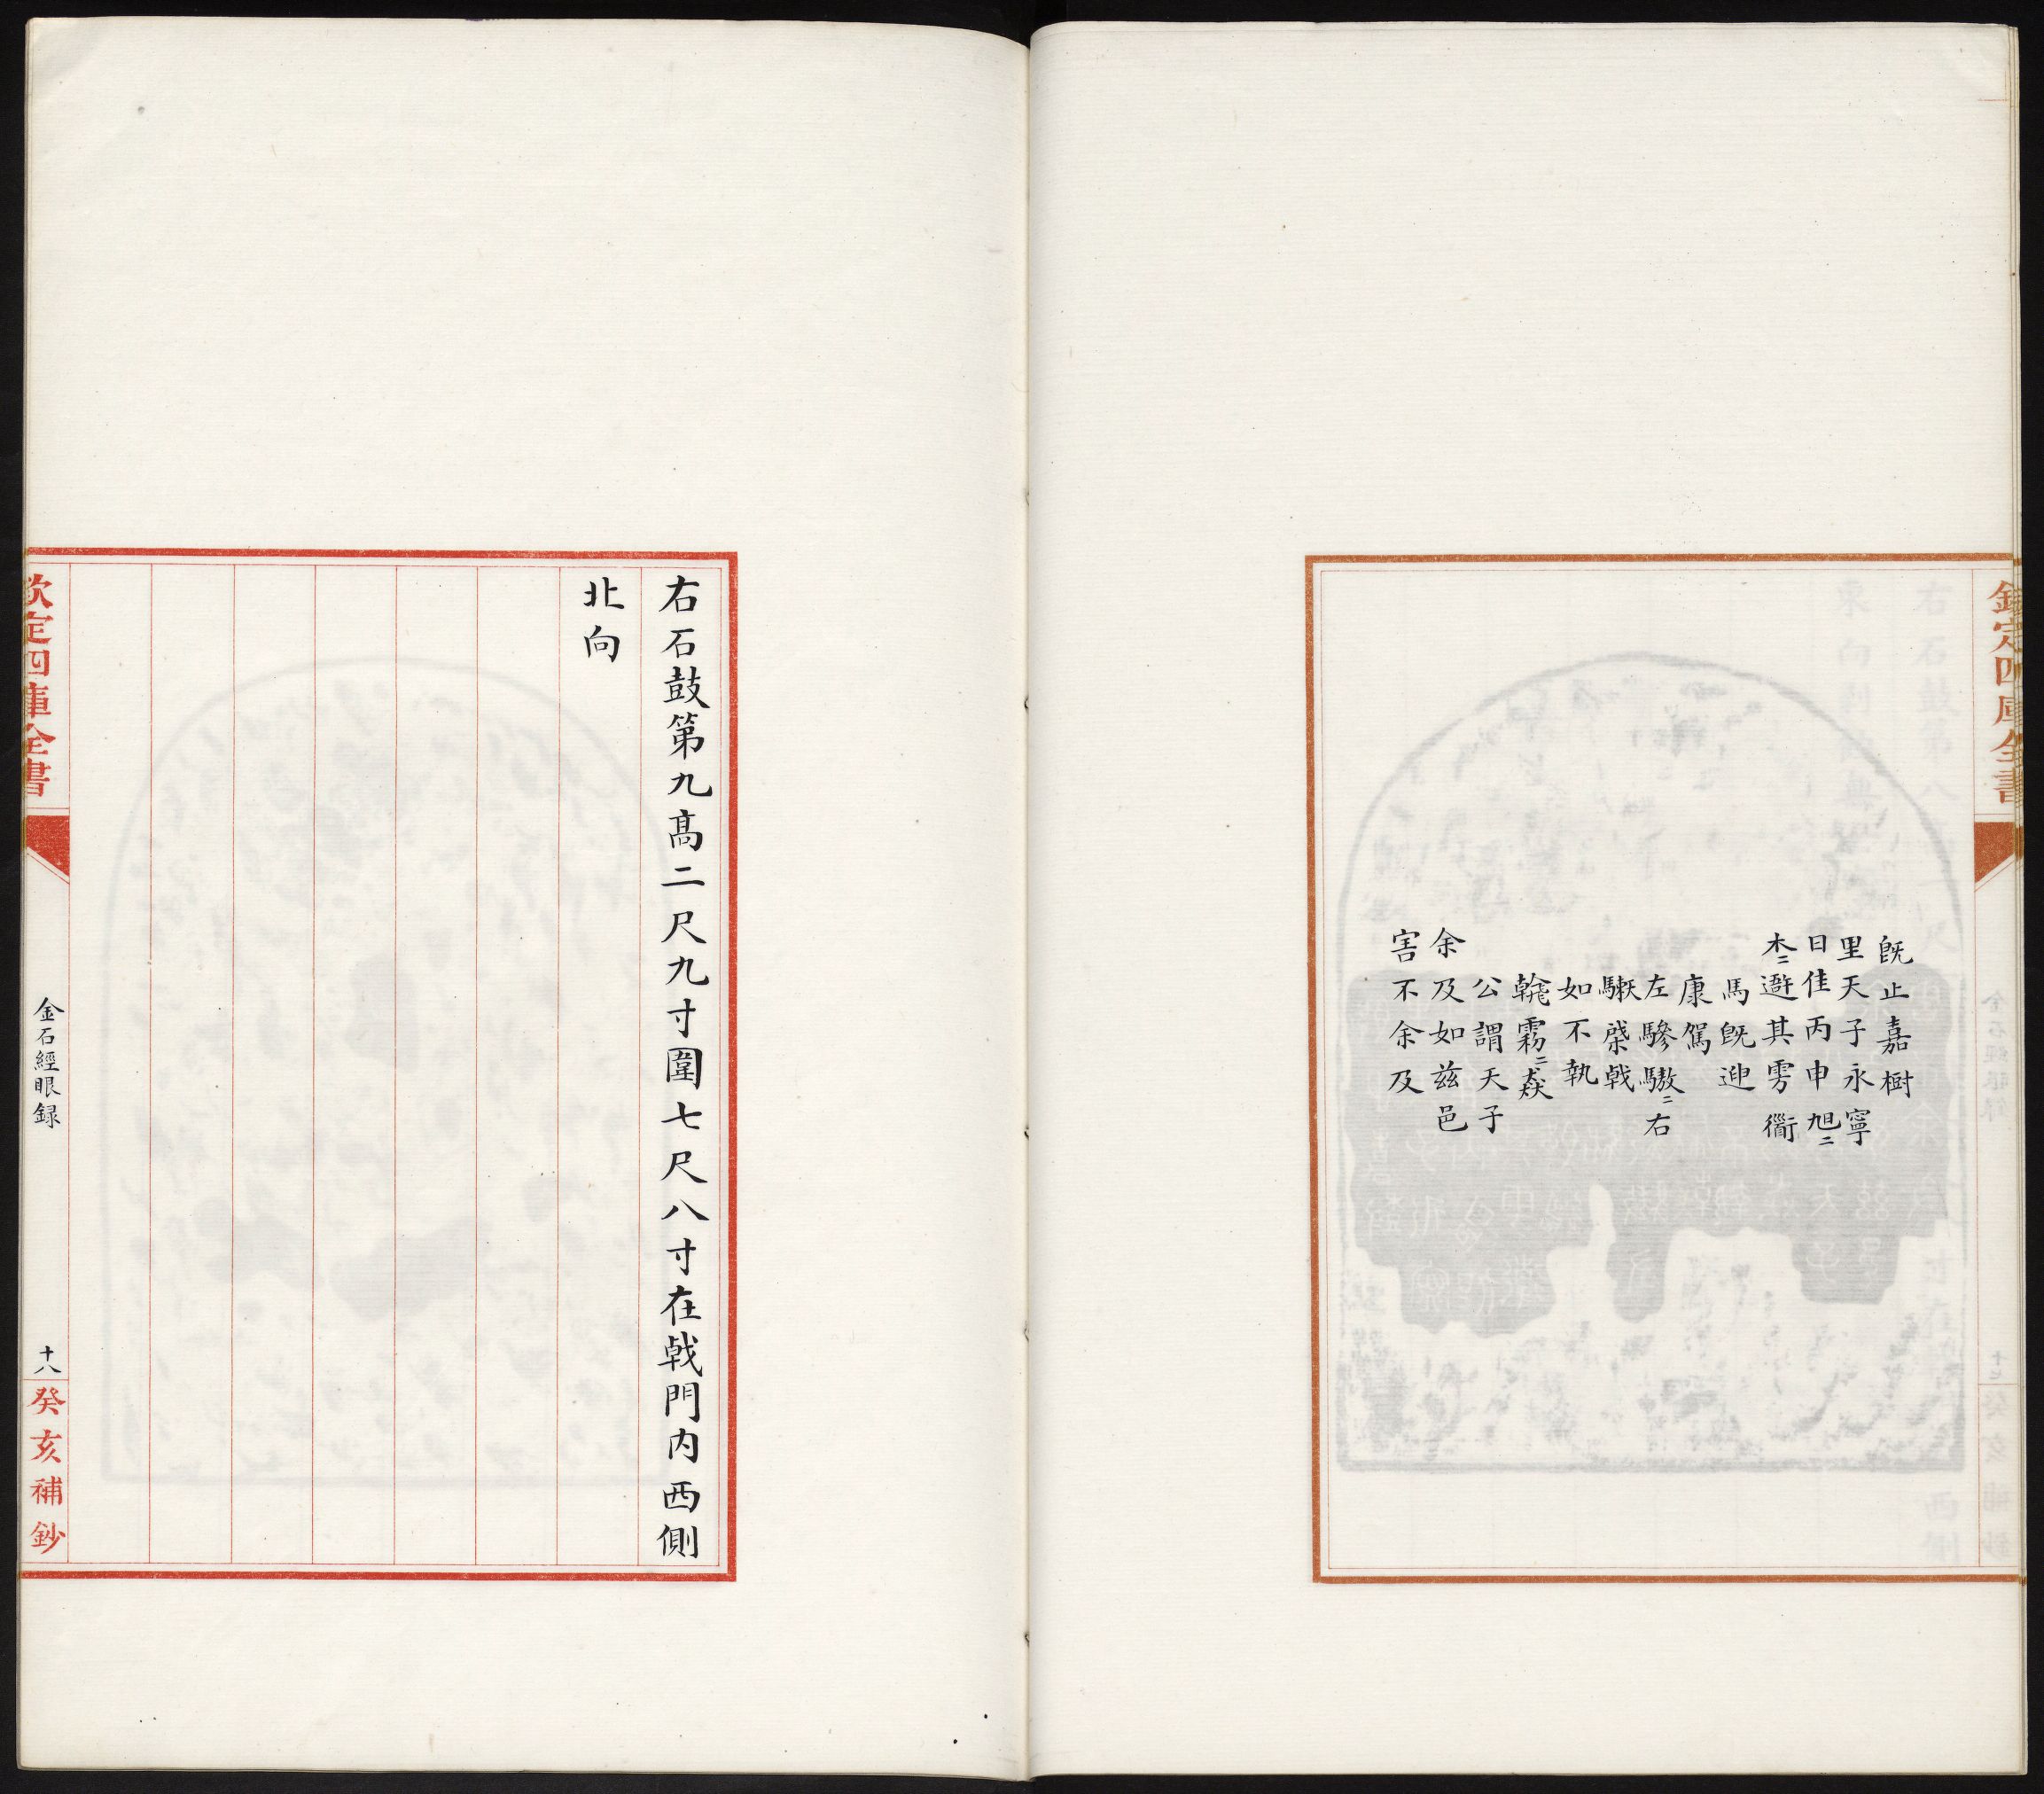 欽定四庫全書
旣止嘉樹
里天子永寧
日佳丙申旭二
木二遊其雱衜
馬旣迎
康駕
左驂驐二右
棨戟
如不執
霧二
公謂天子
余及如兹邑
害不余及
右石鼓第九髙二尺九寸圍七尺八寸在戟門内西側
北向
欽定四庫全書
金石經眼録
十八
癸亥補鈔